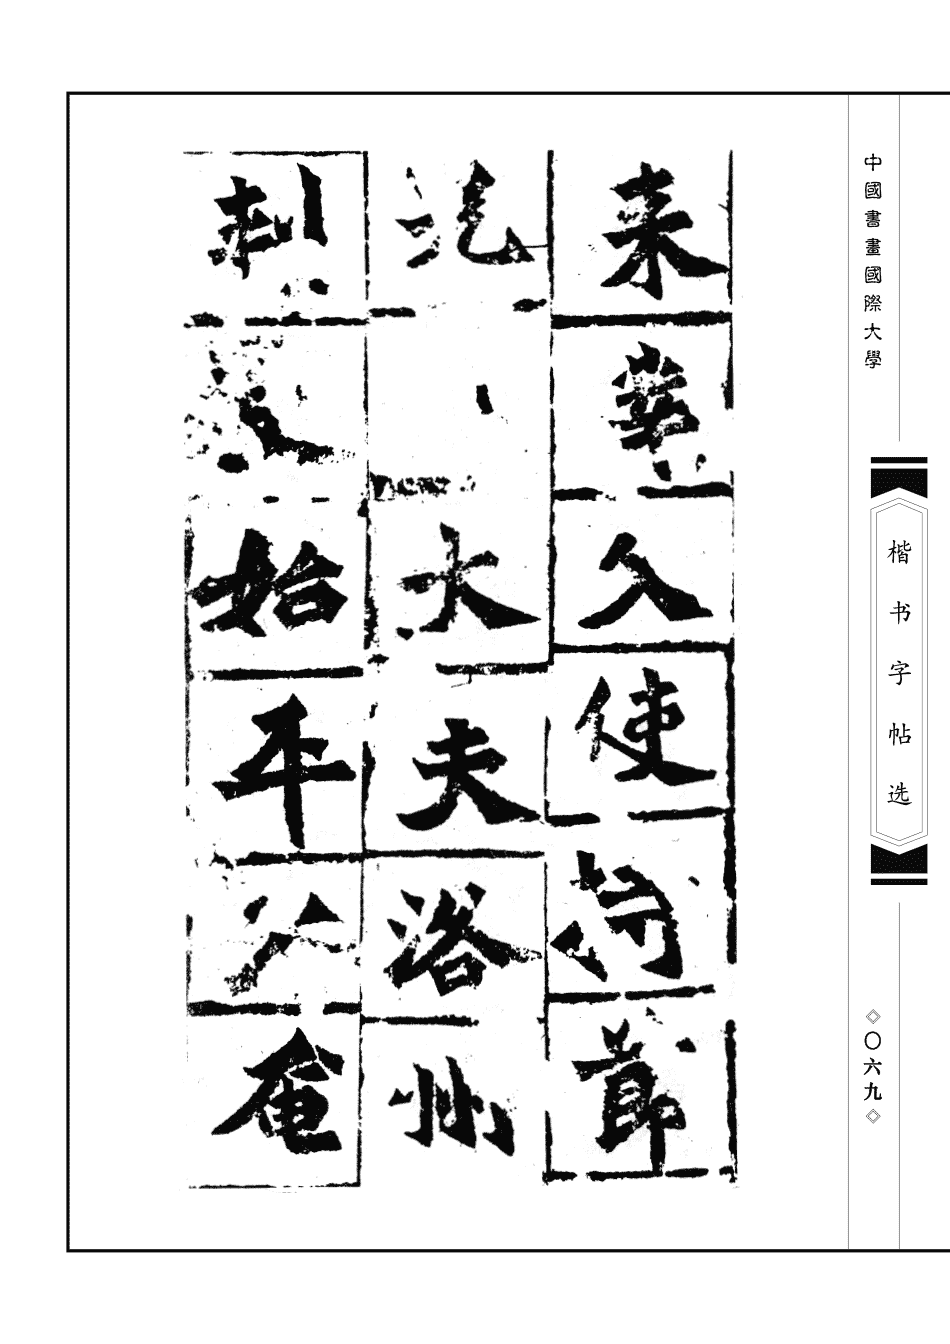 中國書畫國際大學
楷书字帖选
〇六九
来業父使持節
光大夫洛州
刺史始平公奄